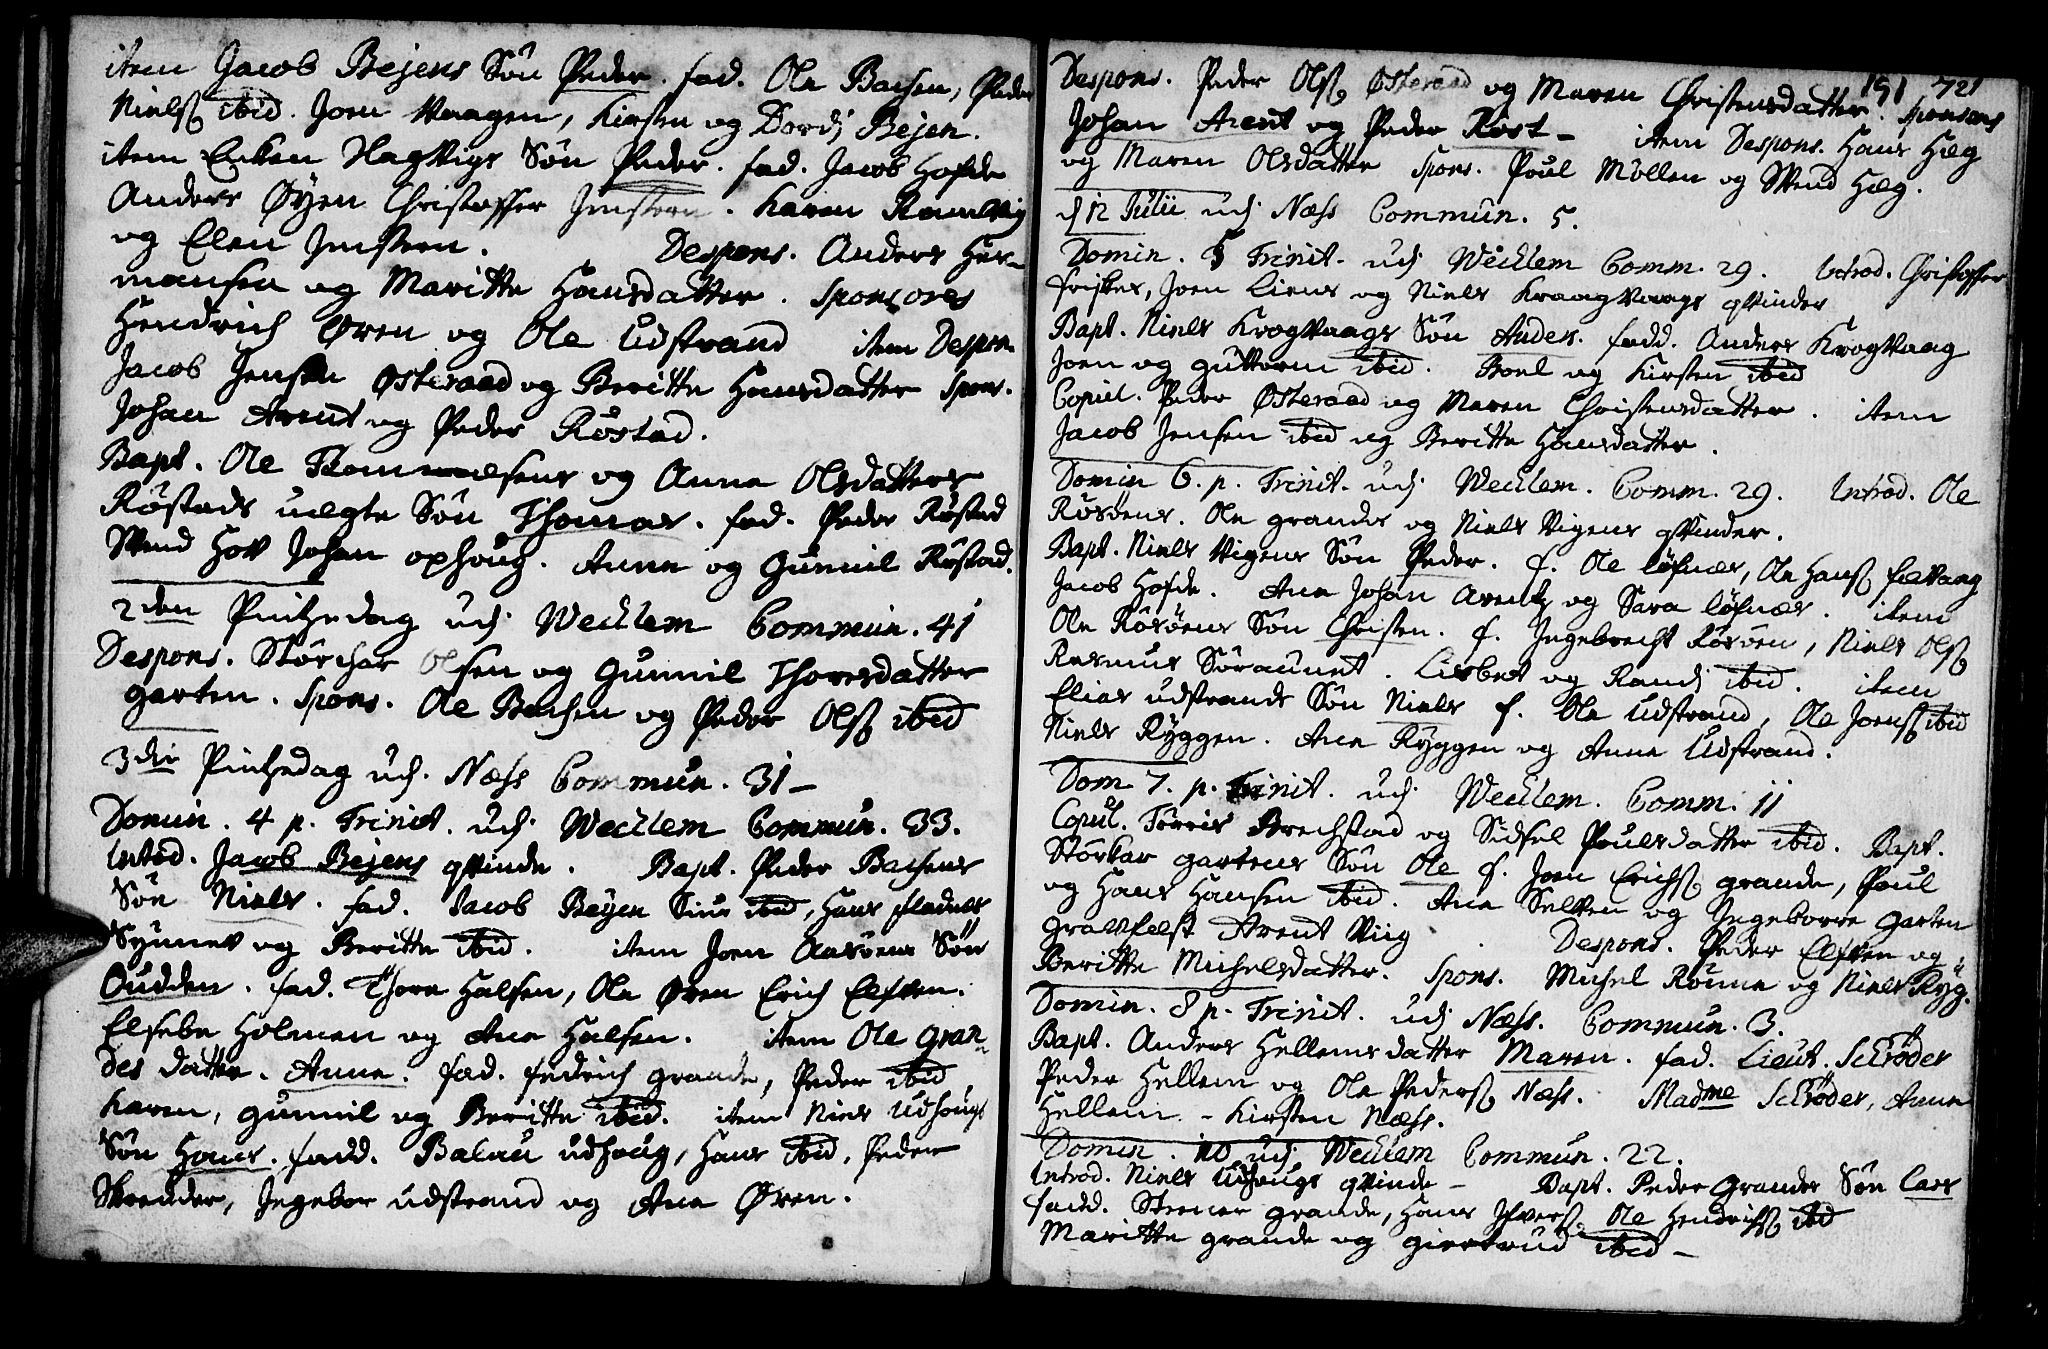 item Jacob Bejens Søn Peder. fad. Ole Bachen, Peder
Nielsß ibid. Joen Vaagen, Kirsten og Dordj Bejen.
item Encken Hagvigs Søn Peder. fad. Jacob Hofde
Anders Øyen Christoffer Jmstern. Karen
og Elen Jmstern. Despons. Anders Her-
mansen og Maritte Hansdatter. Sponsores
Hendrich Øren og Ole Udstrand item Despon.
Jacob Jensen Østeraad og Beritte Hansdatter Spons.
Johan Arent og Peder Røstad.
Bapt. Ole Thommesens og Anna Olsdatters
Røstads uægte Søn Thomas. fad. Peder Røstad
Svend Hov Johan ophoug. Anne og Gunnil Røstad.
2den Pintzedag udj Wechlem Commun. 41
Despons. Størcher Olsen og Gunnil Thoresdatter
garten. Spons. Ole Bachen og Peder Olsß ibid
3die Pintzedag udj. Næss Commun. 31 -
Domin. 4 p. Trinit. udj Wechlem Commun. 33.
Introd. Jacob Bejens qvinde. Bapt. Peder Bachens
Søn Niels. fad. Jacob Bejen Siur ibid, Hans fladnes
Synnet og Beritte ibid. item Joen Aasøens Søn
Oudden. fad. Thore Halsen, Ole Øren Erich Elften.
Elsebe Holmen og Ane Halsen. item Ole gran-
des datter. Anne. fad. fedrich grande, Peder ibid
Karen, gunnil og Beritte ibid. item Niels Udhougs
Søn Hans. fadd. Balau udhoug, Hans ibid, Peder
Skredder, Jngebor udstrand og Ane Øren.
191 721
Despons. Peder Olsß Østeraad og Maren Christensdatter. Sponsores
Johan Arent og Peder Røst - item Despons. Hans Hæg
og Maren Olsdatter Spons. Poul Møllen og Svend Hæg.
d 12 Julii udj Næss Commun. 5.
Domin. 5 Trinit. udj Wechlem Comm. 29. Introd. Christoffer
friskes, Joen Liens og Niels Kraagvaags qvinder
Bapt. Niels Krogvaags Søn Anders. fadd. Anders Krogvaag
Joen og guttorm ibid. Boel og Kirsten ibid
Copul. Peder Østeraad og Maren Christensdatter. item
Jacob Jensen ibid og Beritte Hansdatter.
Domin 6. p. Trinit. udj Wechlem. Comm. 29. Introd. Ole
Røsøens. Ole grandes og Niels Vigens qvinder.
Bapt. Niels Vigens Søn Peder. f. Ole løfnæs, Ole Hansß fævaag
Jacob Hofde. Ane Johan Arentz og Sara løfnæs. item
Ole Røsøens Søn Christen. f. Jngebrecht Røsøen, Niels Olsß
Rasmus Søraunet. Lisbet og Randj ibid. item
Elias udstrands Søn Niels f. Ole Udstrand, Ole Joensß ibid
Niels Ryggen. Ane Ryggen og Anne Udstrand.
Dom 7. p. Trinit. udj Wechlem. Comm. 11
Copul. Torris Brechstad og Sidsel Poulsdatter ibid. Bapt.
Størkar gartens Søn Ole f. Joen Erichsß grande, Poul
og Hans Hansen ibid. Ane Selven og Jngeborre garten
gravfæst Arent Viig. Despons. Peder Elften og
Beritte Michelsdatter. Spons. Michel Rønne og Niels Ryg.
Domin. 8 p. Trinit. udj Næss. Commun. 3.
Bapt. Anders Hellems datter Maren. fad. Lieut. Schrøder
Peder Hellem og Ole Pedersß Næss. Madme Schrøder, Anne
Hellem - Kirsten Næss.
Domin. 10 udj Wechlem Commun. 22.
Introd. Niels Udhougs qvinde - Bapt. Peder Grandes Søn Lars
fadd. Steener grande, Hans Jfversß, Ole Hendrichsß ibid
Maritte grande og giertrud ibid -